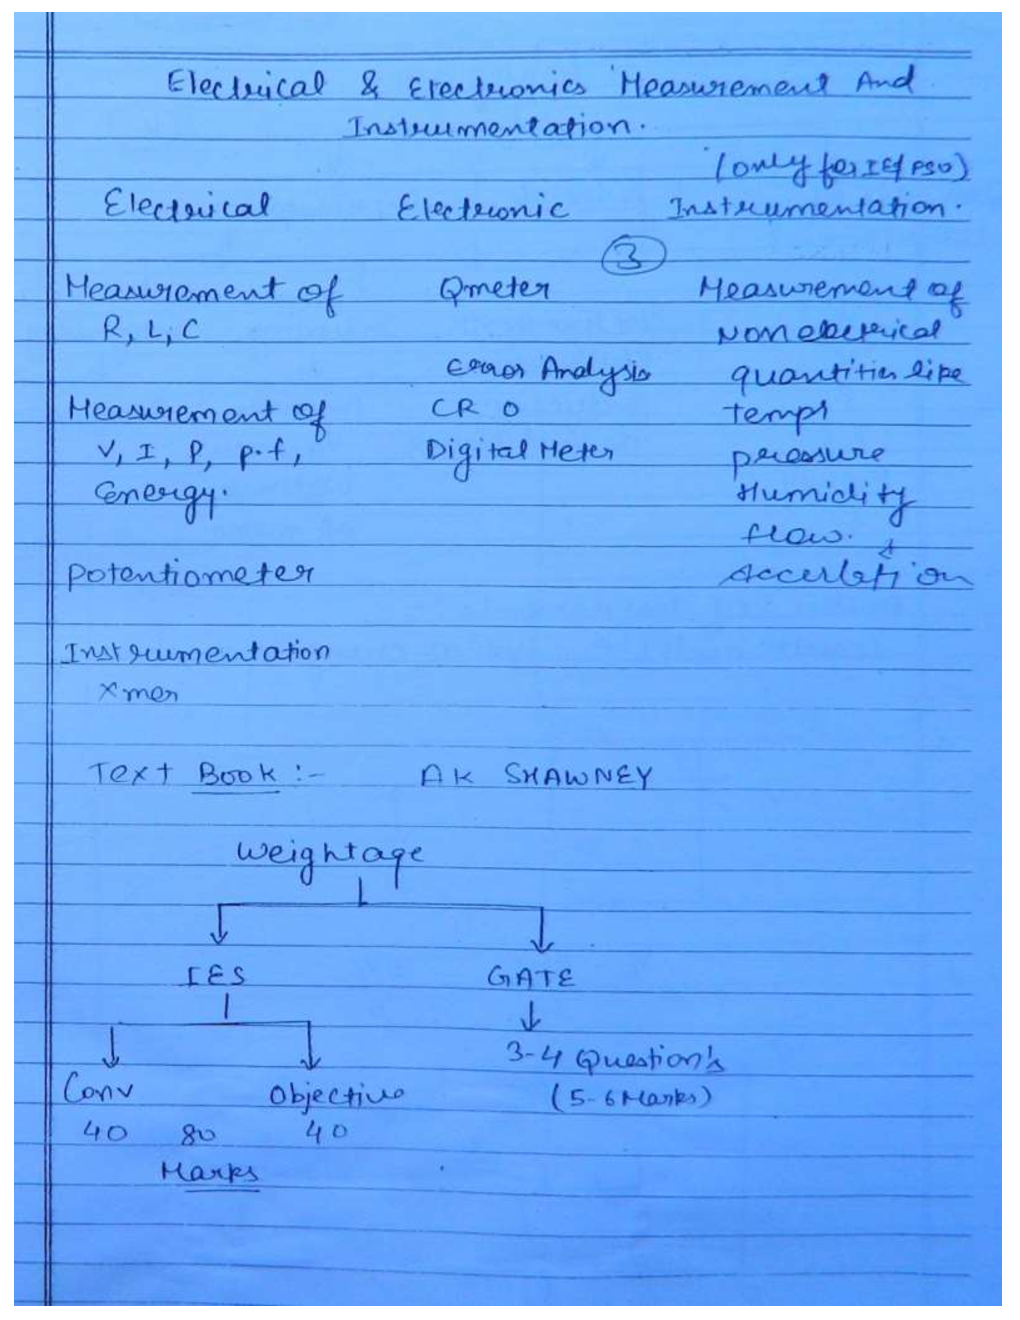 Electrical & Electronics Measurement And
Instrumentation.
(only for IES/PSU)
Electrical Electronic Instrumentation.
3
Measurement of Qmeter Measurement of
R, L, C Non electrical
Error Analysis quantities like
Measurement of CRO temp
V, I, P, p.f, Digital Meter pressure
Energy. Humidity
flow. &
Potentiometer Accerlation
Instrumentation
Xmer
Text Book :- AK SHAWNEY
Weightage
IES GATE
3-4 Question's
Conv Objective (5-6 Marks)
40 80 40
Marks